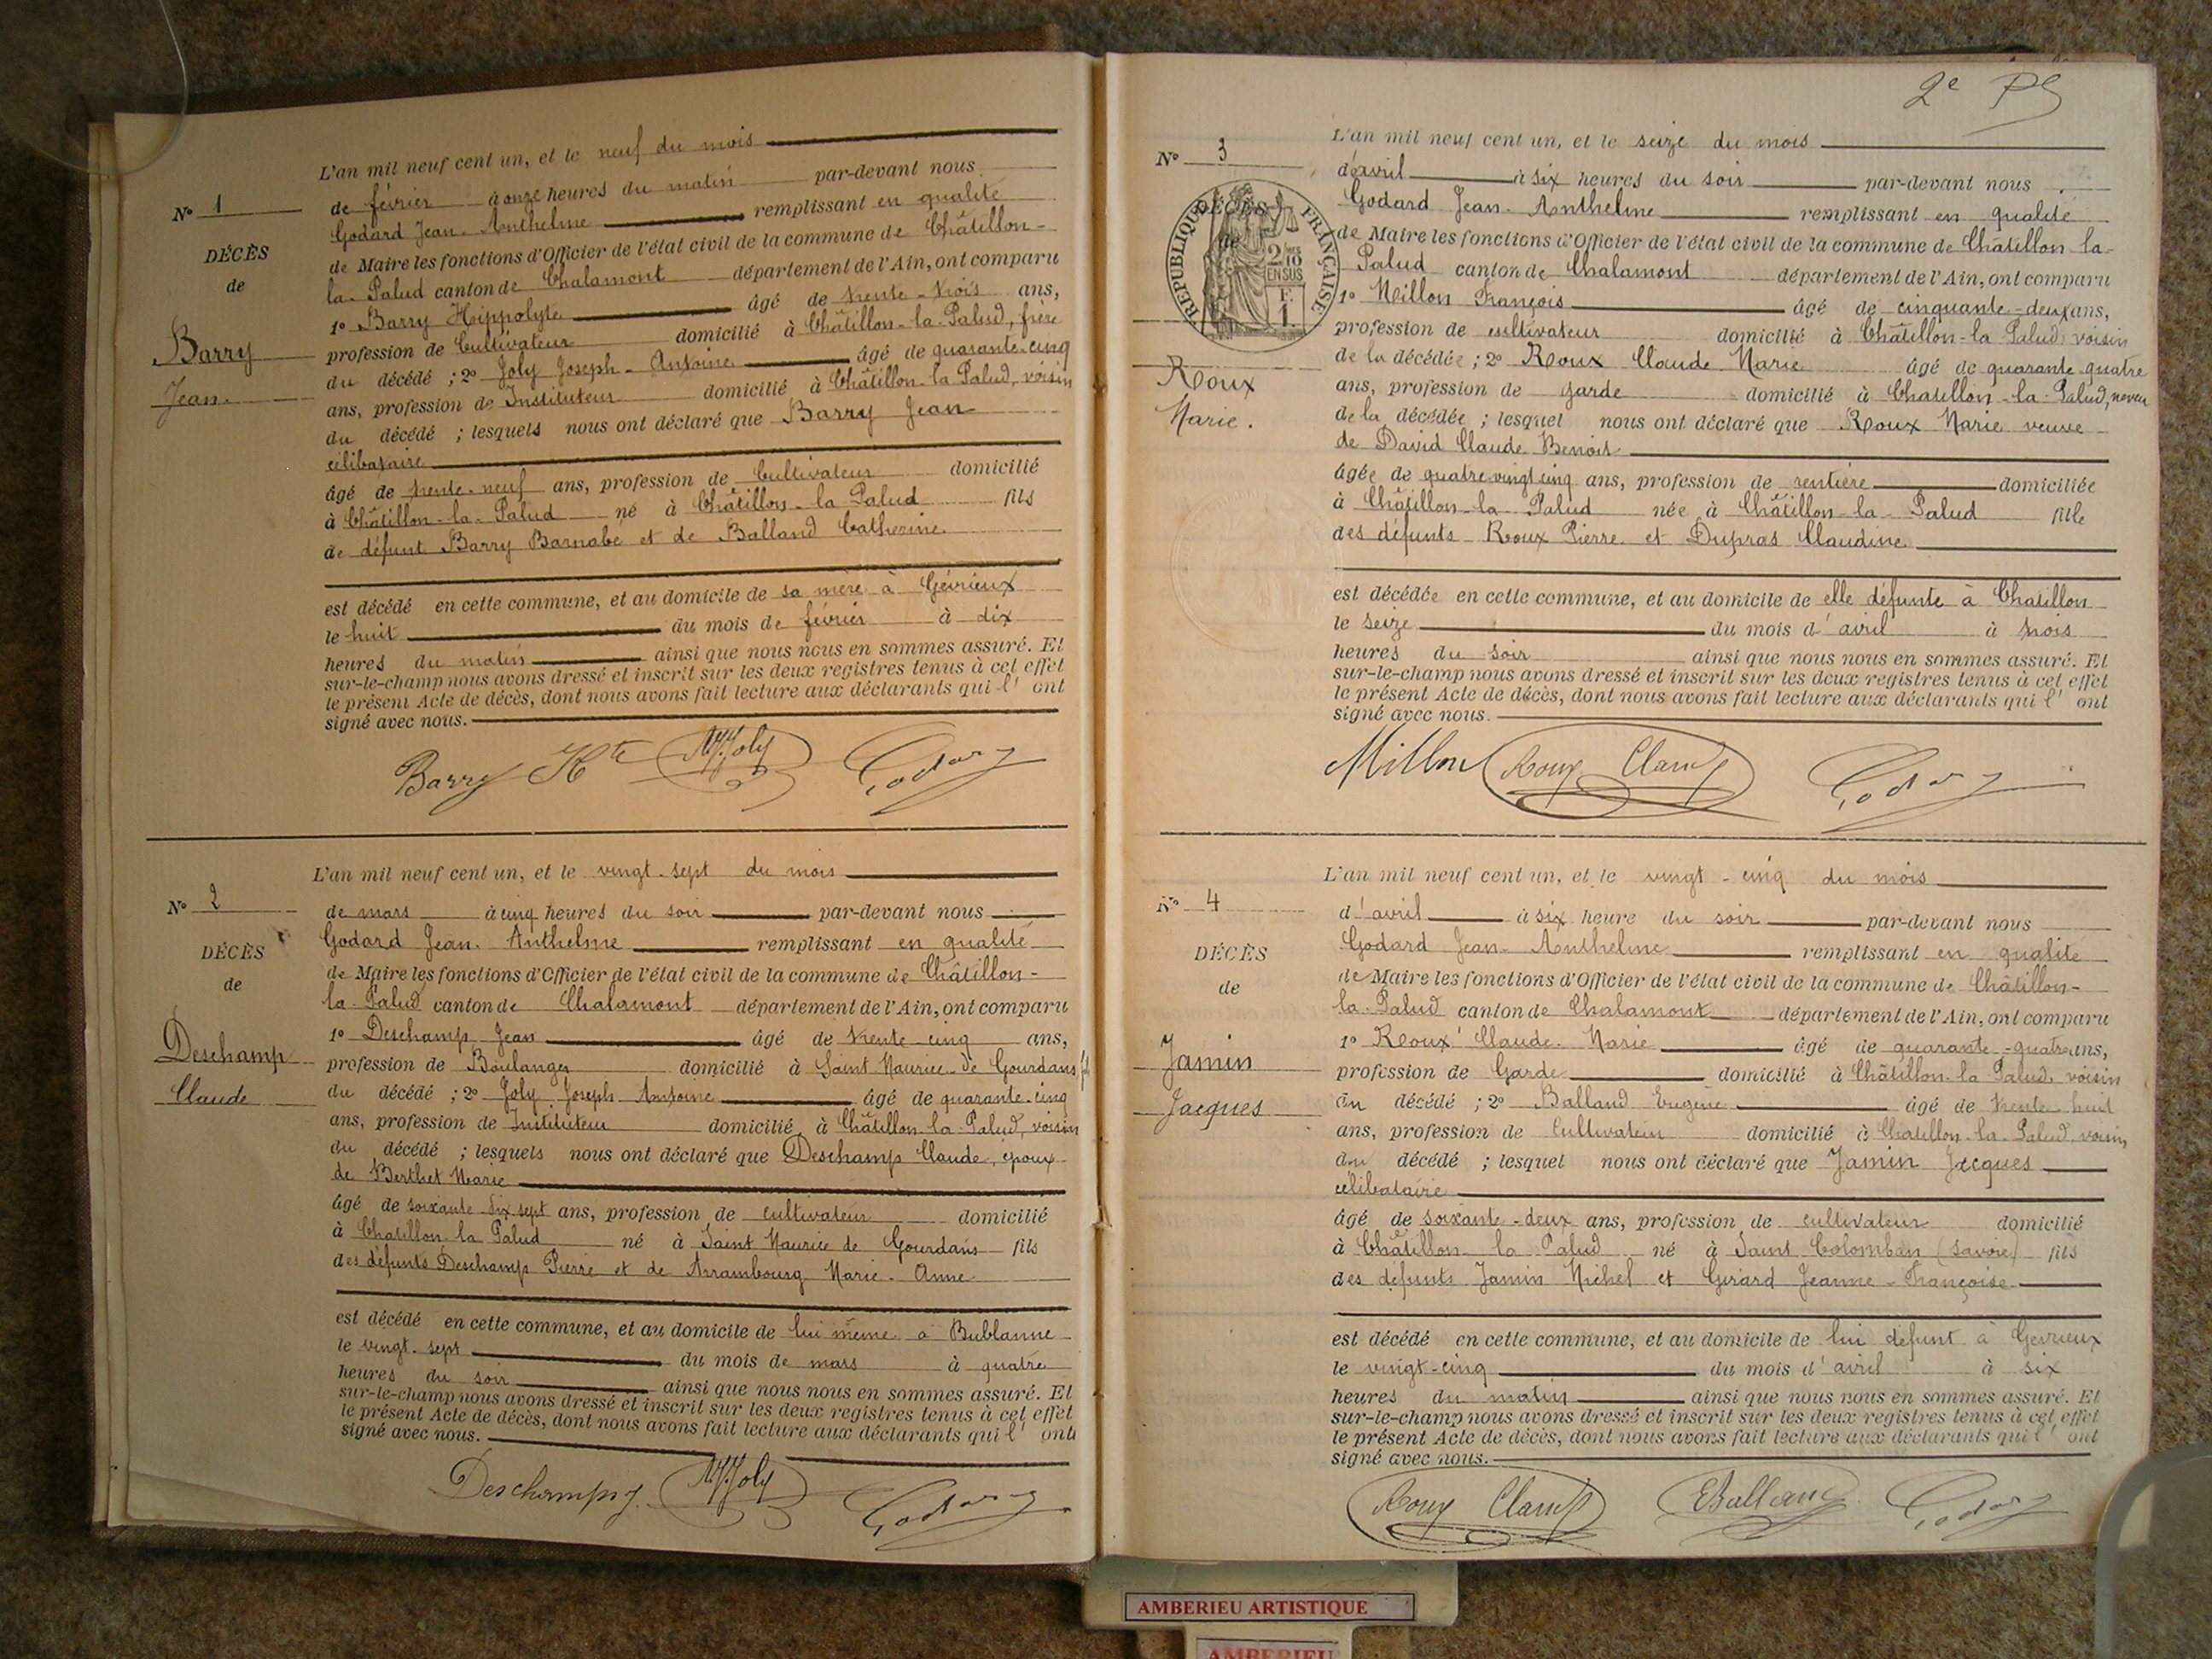 L'an mil neuf cent un, et le neuf du mois
Nº 1
de février à onze heures du matin par-devant nous
Godard Jean-Anthelme remplissant en qualité
DÉCÈS
de Maire les fonctions d'Officier de l'état civil de la commune de Châtillon-
de
la-Palud canton de Chalamont département de l'Ain, ont comparu
1º Barry Hippolyte âgé de trente-trois ans,
Barry
profession de Cultivateur domicilié à Châtillon-la-Palud, frère
du décédé ; 2º Joly Joseph-Antoine âgé de quarante-cinq
Jean.
ans, profession de Instituteur domicilié à Châtillon-la-Palud, voisin
du décédé ; lesquels nous ont déclaré que Barry Jean
célibataire
âgé de trente-neuf ans, profession de Cultivateur domicilié
à Châtillon-la-Palud né à Châtillon-la Palud fils
de défunt Barry Barnabé et de Balland Catherine
est décédé en cette commune, et au domicile de sa mère à Gévrieux
le huit du mois de février à dix
heures du matin ainsi que nous nous en sommes assuré. Et
sur-le-champ nous avons dressé et inscrit sur les deux registres tenus à cet effet
le présent Acte de décès, dont nous avons fait lecture aux déclarants qui l' ont
signé avec nous.
Barry Hte Joly Godard
L'an mil neuf cent un, et le vingt-sept du mois
Nº 2
de mars à cinq heures du soir par-devant nous
Godard Jean-Anthelme remplissant en qualité
DÉCÈS
de Maire les fonctions d'Officier de l'état civil de la commune de Châtillon-
de
la-Palud canton de Chalamont département de l'Ain, ont comparu
1º Deschamp Jean âgé de trente-cinq ans,
Deschamp
profession de Boulanger domicilié à Saint Maurice-de Gourdans
Claude
du décédé ; 2º Joly Joseph Antoine âgé de quarante-cinq
ans, profession de Instituteur domicilié à Châtillon-la-Palud, voisin
du décédé ; lesquels nous ont déclaré que Deschamp Claude, époux
de Berthet Marie
âgé de soixante dix sept ans, profession de cultivateur domicilié
à Chatillon-la Palud né à Saint Maurice de Gourdans fils
des défunts Deschamp Pierre et de Arrambourg Marie-Anne
est décédé en cette commune, et au domicile de lui même à Bublanne
le vingt-sept du mois de mars à quatre
heures du soir ainsi que nous nous en sommes assuré. Et
sur-le-champ nous avons dressé et inscrit sur les deux registres tenus à cet effet
le présent Acte de décès, dont nous avons fait lecture aux déclarants qui l' ont
signé avec nous.
Deschamps J. Joly Godard
2e
L'an mil neuf cent un, et le seize du mois
Nº 3
d'avril à six heures du soir par-devant nous
Godard Jean-Anthelme remplissant en qualité
DÉCÈS
de
REPUBLIQUE FRANÇAISE
2/10 EN SUS
F. 1.
de Maire les fonctions d'Officier de l'état civil de la commune de Châtillon-la-
Palud canton de Chalamont département de l'Ain, ont comparu
1º Millon François âgé de cinquante-deux ans,
profession de cultivateur domicilié à Châtillon-la Palud voisin
de la décédée ; 2º Roux Claude Marie âgé de quarante quatre
Roux
ans, profession de garde domicilié à Chatillon-la-Palud, neveu
Marie.
de la décédée ; lesquel nous ont déclaré que Roux Marie veuve
de David Claude Benoit
âgée de quatre-vingt cinq ans, profession de rentière domiciliée
à Châtillon-la Palud née à Châtillon-la-Palud fille
des défunts Roux Pierre et Dupras Claudine
est décédée en cette commune, et au domicile de elle défunte à Chatillon
le seize du mois d'avril à trois
heures du soir ainsi que nous nous en sommes assuré. Et
sur-le-champ nous avons dressé et inscrit sur les deux registres tenus à cet effet
le présent Acte de décès, dont nous avons fait lecture aux déclarants qui l' ont
signé avec nous.
Millon Roux Claude Godard
L'an mil neuf cent un, et le vingt-cinq du mois
Nº 4
d'avril à six heure du soir par-devant nous
Godard Jean-Anthelme remplissant en qualité
DÉCÈS
de Maire les fonctions d'Officier de l'état civil de la commune de Châtillon-
de
la-Palud canton de Chalamont département de l'Ain, ont comparu
1º Roux Claude-Marie âgé de quarante-quatre ans,
Jamin
profession de Garde domicilié à Châtillon-la Palud, voisin
Jacques
du décédé ; 2º Balland Eugène âgé de trente huit
ans, profession de Cultivateur domicilié à Chatillon-la-Palud, voisin
du décédé ; lesquel nous ont déclaré que Jamin Jacques
célibataire
âgé de soixante-deux ans, profession de cultivateur domicilié
à Châtillon-la Palud né à Saint Colomban (Savoie) fils
des défunts Jamin Michel et Girard Jeanne-Françoise
est décédé en cette commune, et au domicile de lui défunt à Gevrieux
le vingt-cinq du mois d'avril à six
heures du matin ainsi que nous nous en sommes assuré. Et
sur-le-champ nous avons dressé et inscrit sur les deux registres tenus à cet effet
le présent Acte de décès, dont nous avons fait lecture aux déclarants qui l' ont
signé avec nous.
Roux Claude EBalland Godard
AMBERIEU ARTISTIQUE
AMBERIEU